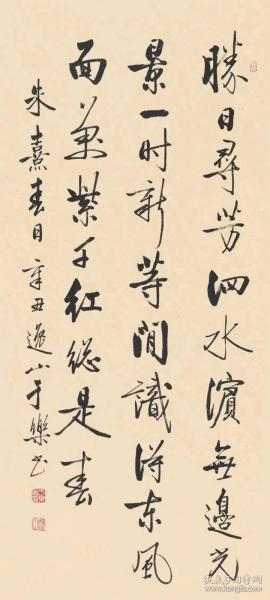 勝日尋芳泗水濱無邊光
景一时新等閒識得东風
面萬紫千红總是春
朱熹春日 辛丑 逸山于樂书